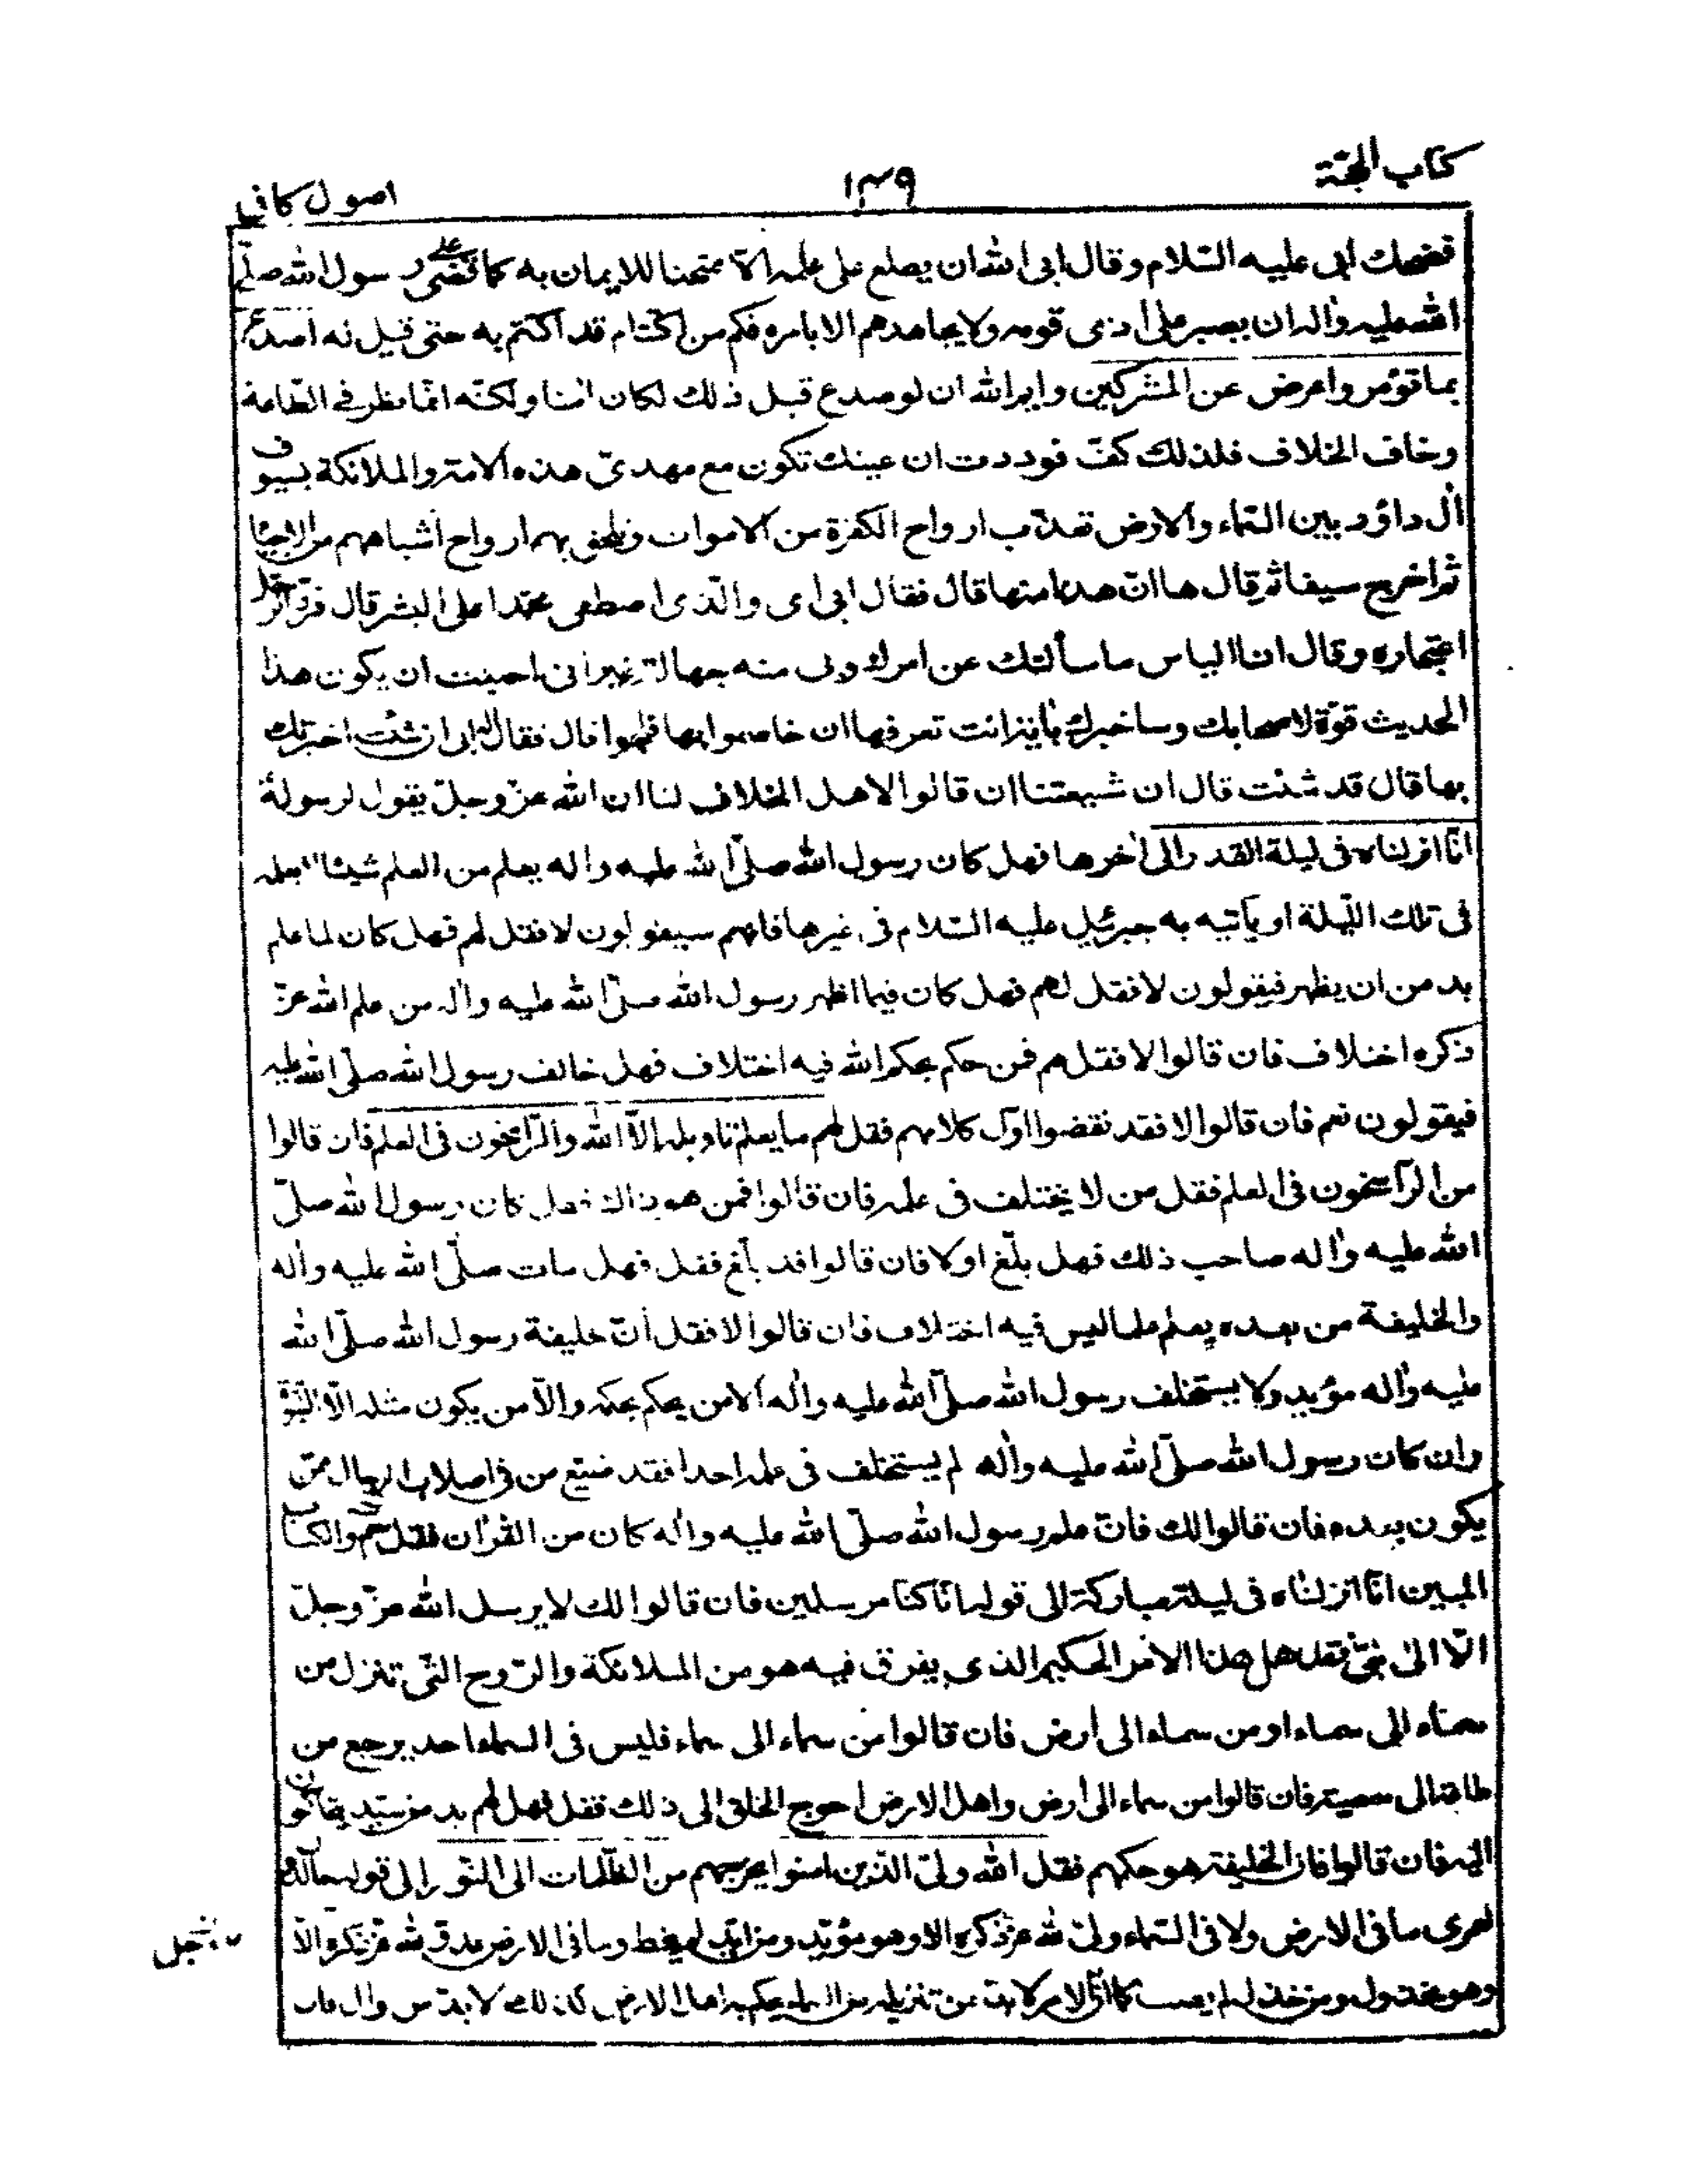 كتاب الحجّة
١٣٩
اصول كافى
فضحك ابى عليه السّلام وقال ابى الله ان يطلع على علمه الّا ممتحنا للايمان به كما قضى على رسول الله صلّى
الله عليه واٰله ان يصبر على اذى قومه ولا يجاهدهم الا بامره فكم من اكتتام قد اكتتم به حتى قيل له اصدع
بما تؤمر واعرض عن المشركين وايم الله ان لو صدع قبل ذلك لكان اٰمنا ولكنّه انّما نظر فى الطّاعة
وخاف الخلاف فلذلك كفّ فوددت ان عينك تكون مع مهدىّ هذه الامّة والملائكة بسيوف
اٰل داؤد بين السّماء والارض تعذّب ارواح الكفرة من الاموات وتلحق بهم ارواح اشباههم من الاحياء
ثم اخرج سيفا ثم قال ها انّ هذا منها قال فقال ابى اى والّذى اصطفى محمّدا على البشر قال فردّ الرّجل
اعتجاره وقال انا الياس ما سألتك عن امرك ولى منه جهالة غير انى احببت ان يكون هذا
الحديث قوّة لاصحابك وساخبرك باٰية انت تعرفها ان خاصموا بها فلجوا قال فقال له ابى ان شئت اخبرتك
بها قال قد شئت قال ان شيعتنا ان قالوا لاهل الخلاف لنا ان الله عزّ وجلّ يقول لرسوله
انّا انزلناه فى ليلة القدر الى اٰخرها فهل كان رسول الله صلّى الله عليه واٰله يعلم من العلم شيئا لا يعلمه
فى تلك اللّيلة او يأتيه به جبرئيل عليه السّلام فى غيرها فانهم سيقولون لا فقل لهم فهل كان لما علم
بد من ان يظهر فيقولون لا فقل لهم فهل كان فيما اظهر رسول الله صلّى الله عليه واٰله من علم الله عزّ
ذكره اختلاف فان قالوا لا فقل لهم فمن حكم بحكم الله فيه اختلاف فهل خالف رسول الله صلّى الله عليه
فيقولون نعم فان قالوا لا فقد نقضوا اوّل كلامهم فقل لهم ما يعلم تاويله إلّا الله والرّاسخون فى العلم فان قالوا
من الرّاسخون فى العلم فقل من لا يختلف فى علمه فان قالوا فمن هو ذاك فقل كان رسول الله صلّى
الله عليه واٰله صاحب ذلك فهل بلّغ او لا فان قالوا قد بلّغ فقل فهل مات صلّى الله عليه واٰله
والخليفة من بعده يعلم علما ليس فيه اختلاف فان قالوا لا فقل انّ خليفة رسول الله صلّى الله
عليه واٰله مؤيد ولا يستخلف رسول الله صلّى الله عليه واٰله الا من يحكم بحكمه والّا من يكون مثله الّا النّبوّة
وان كان رسول الله صلّى الله عليه واٰله لم يستخلف فى علمه احدا فقد ضيّع من فى اصلاب الرجال ممّن
يكون بعده فان قالوا لك فانّ علم رسول الله صلّى الله عليه واٰله كان من القراٰن فقل حٰم والكتاب
المبين انّا انزلناه فى ليلة مباركة الى قوله انّا كنّا مرسلين فان قالوا لك لا يرسل الله عزّ وجلّ
الّا الى نبىّ فقل هل هذا الامر الحكيم الذى يفرق فيه هو من الملائكة والرّوح الّتى تنزل من
سماء الى سماء او من سماء الى أرض فان قالوا من سماء الى سماء فليس فى السماء احد يرجع من
طاعة الى معصية فان قالوا من سماء الى أرض واهل الارض احوج الخلق الى ذلك فقل فهل لهم بد من سيّد يتحاكمون
اليه فان قالوا فان الخليفة هو حكمهم فقل الله ولىّ الّذين اٰمنوا يخرجهم من الظّلمات الى النّور إلى قوله خالدون
لعمرى ما فى الارض ولا فى السّماء ولىّ لله عزّ ذكره الا وهو مؤيّد ومن ايّد لم يخط وما فى الارض عدوّ لله عزّ ذكره الّا
وهو مخذول ومن خذل لم يصب كما انّ الامر لا بد من تنزيله من السماء يحكم به اهل الارض كذلك لا بد من وال فان